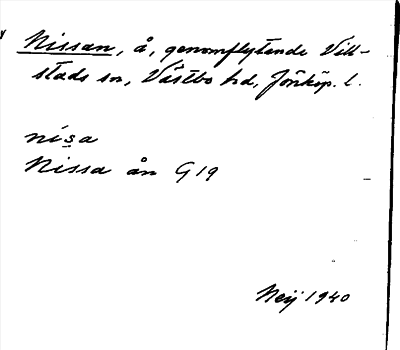 Nissan, å, genomflytande Vill-
stads sn, Västbo hd, Jönköp. l.
nisa
Nissa ån G19
Neij 1940